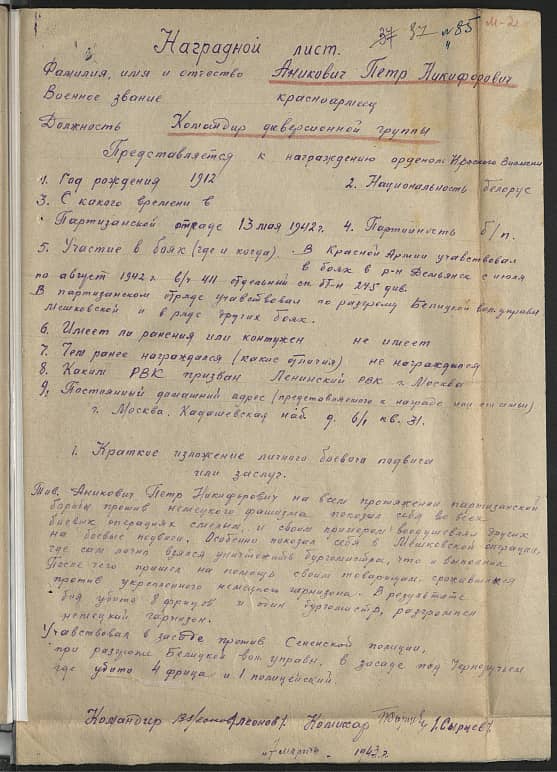 37 37 №85 М-2
Наградной лист.
Фамилия, имя и отчество Аникович Петр Никифорович
Военное звание красноармеец
Должность Командир диверсионной группы
Представляется к награждению орденом Красного Знамени
1. Год рождения 1912 2. Национальность белорус
3. С какого времени в
Партизанской отряде 13 мая 1942 г. 4. Партийность б/п.
5. Участие в боях (где и когда). В Красной Армии учавствовал
в боях в р-н Демьянск с июля
по август 1942 г. в/ч 411 отдельный 245 див.
В партизанском отряде учавствовал по разгрому Белицкой вол. управы
Мешковской и в ряде других боях.
6. Имеет ли ранения или контужен не имеет
7. Чем ранее награждался (какие отличия) не награждался
8. Каким РВК призван Ленинский РВК г. Москва
9. Постоянный домашний адрес (представляемого к награде или его семьи)
г. Москва. Кадашевская наб. д. 6/1 кв. 31.
1. Краткое изложение личного боевого подвига
или заслуг.
Тов. Аникович Петр Никифорович на всем протяжении партизанской
борьбы против немецкого фашизма показал себя во всех
боевых операциях смелым, и своим примером воодушевлял других
на боевые подвиги. Особенно показал себя в Мешковской операции,
где сам лично взялся уничтожить бургомистра, что и выполнил
После чего пришел на помощь своим товарищам, сражавшимся
против укрепленного немецкого гарнизона. В результате
боя убито 8 фрицов и один бургомистр, разгромлен
немецкий гарнизон.
Учавствовал в засаде против Сененской полиции,
при разгроме Белицкой вол. управы, в засаде под Чернечьем
где убито 4 фрица и 1 полицейский.
Командир /Леонов/. Комиссар /Сырцев/.
" март 1943 г.